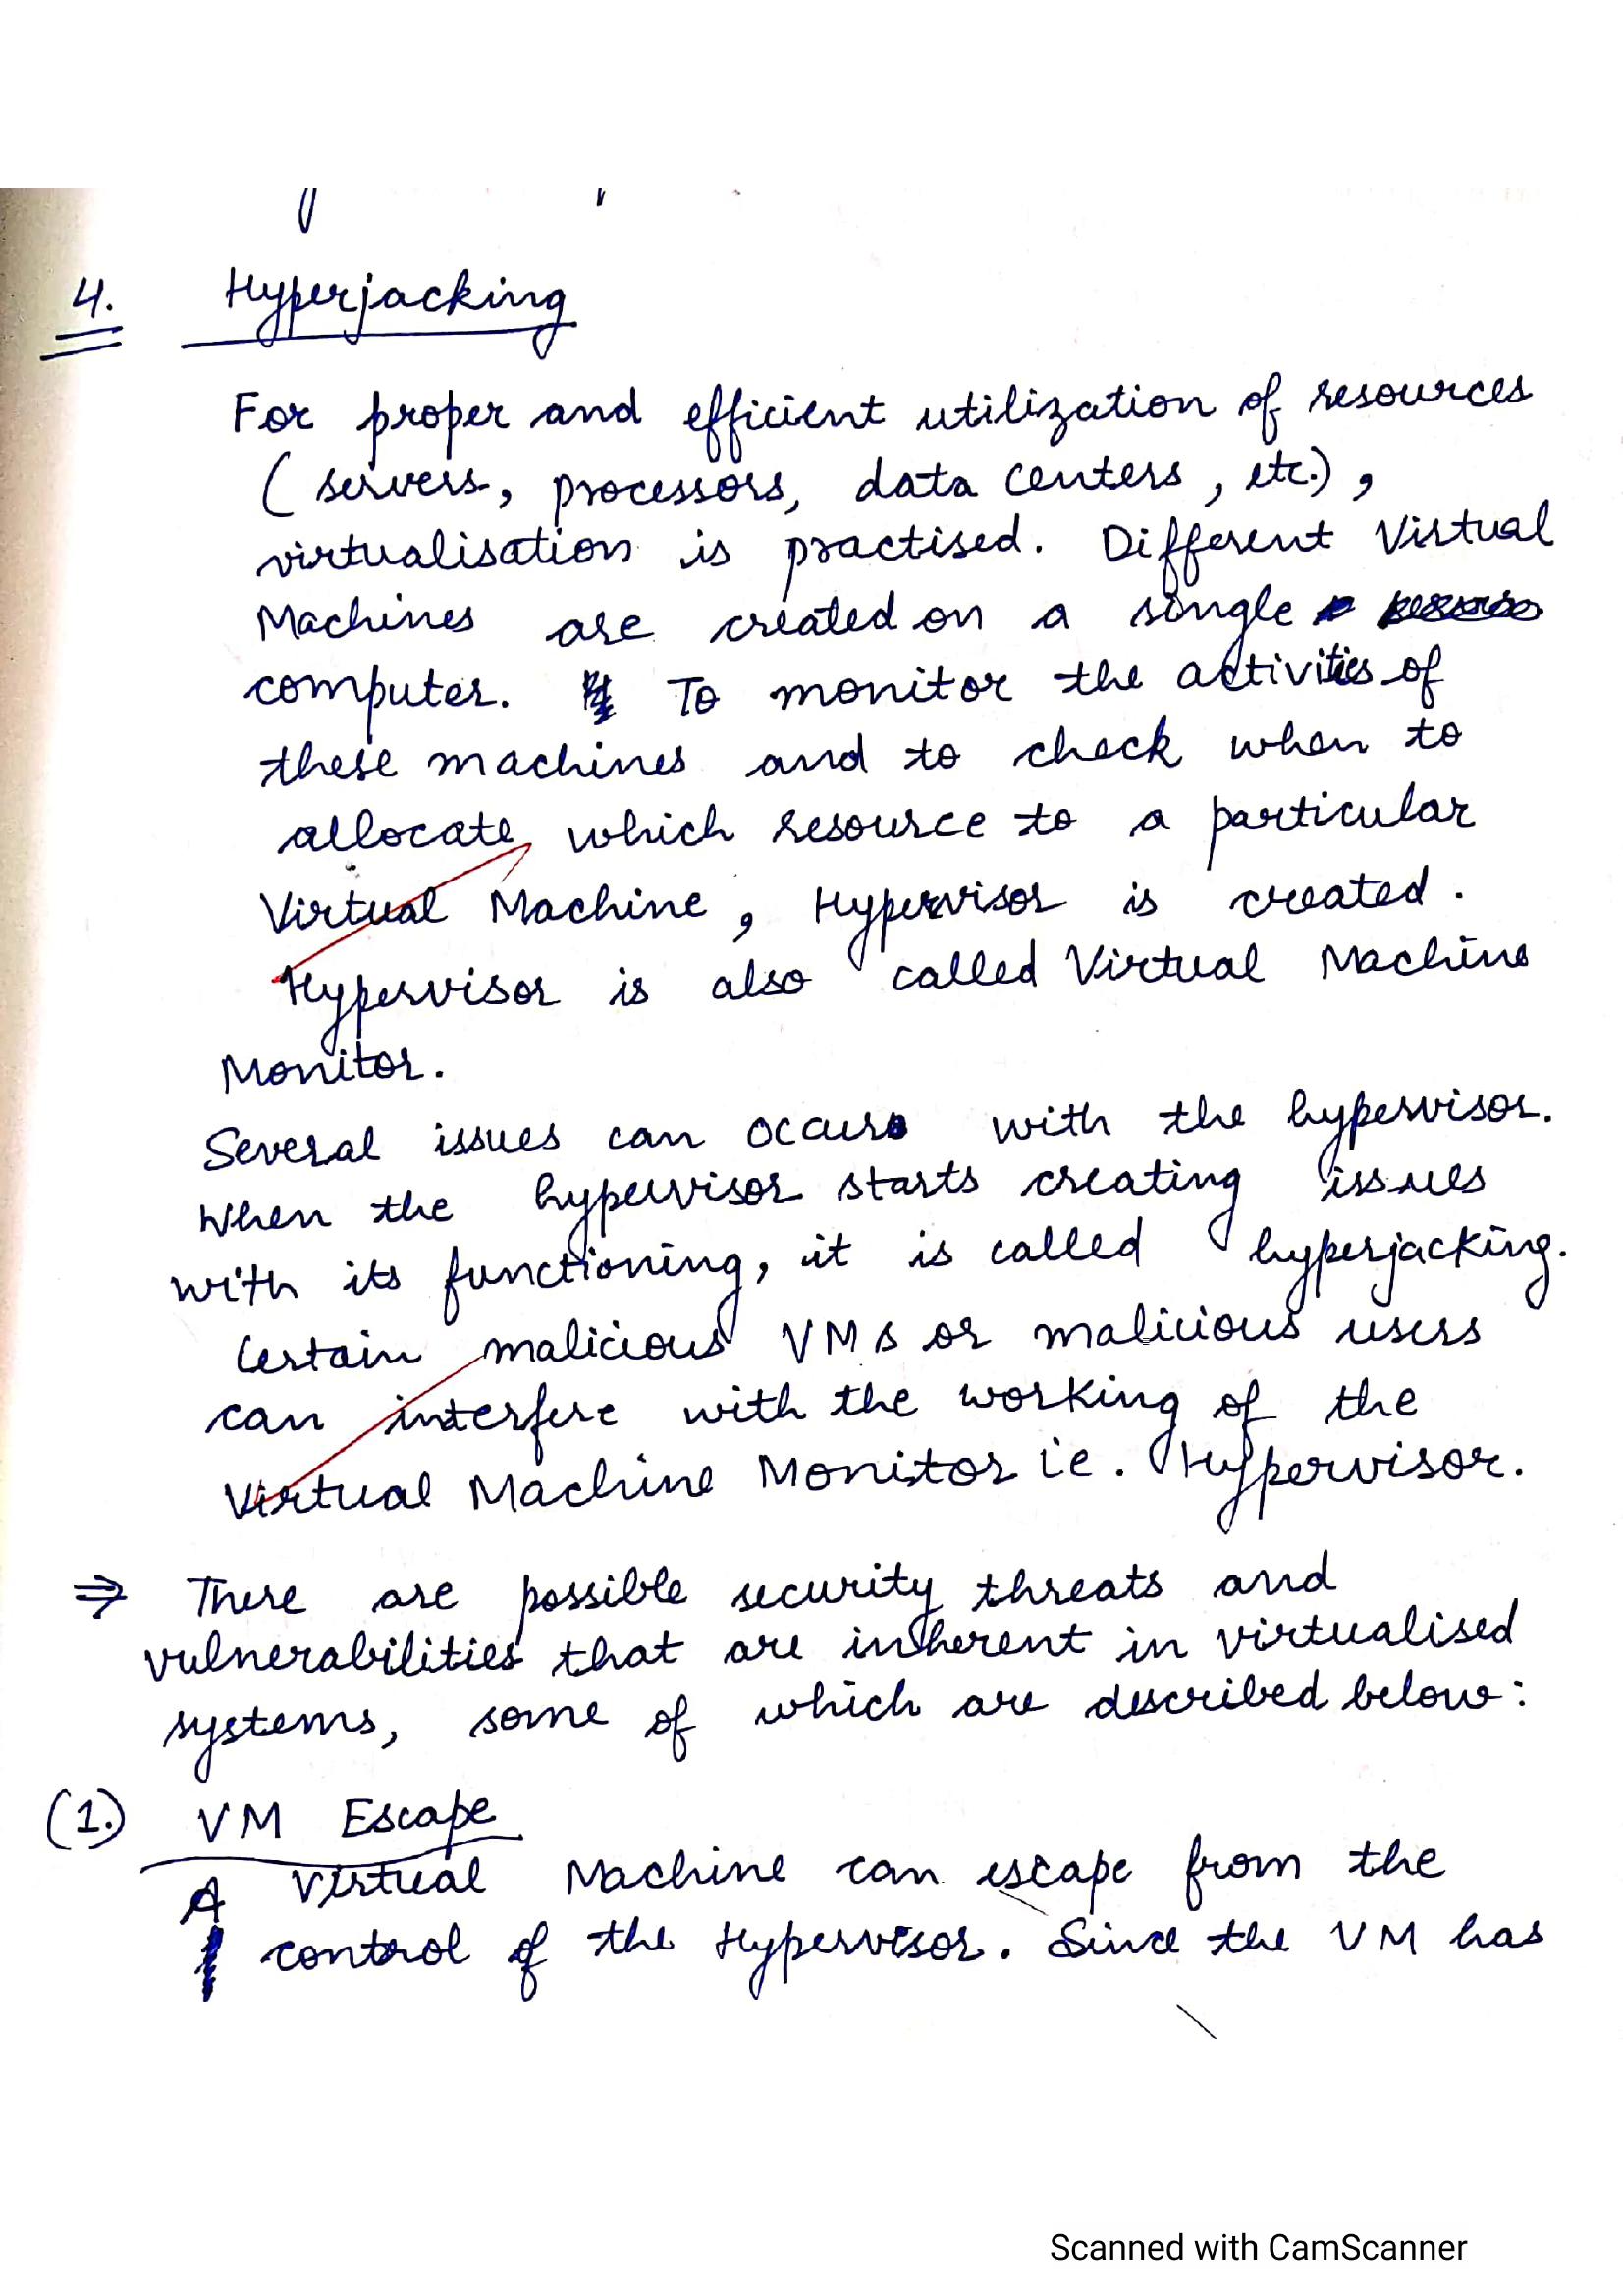 4. Hyperjacking
For proper and efficient utilization of resources
( servers, processors, data centers, etc.),
virtualisation is practised. Different Virtual
Machines are created on a single
computer. To monitor the activities of
these machines and to check when to
allocate which resource to a particular
Virtual Machine, Hypervisor is created.
Hypervisor is also called Virtual Machine
Monitor.
Several issues can occur with the hypervisor.
When the hypervisor starts creating issues
with its functioning, it is called hyperjacking.
Certain malicious VMs or malicious users
can interfere with the working of the
Virtual Machine Monitor ie. Hypervisor.
⇒ There are possible security threats and
vulnerabilities that are inherent in virtualised
systems, some of which are described below:
(1.) VM Escape
A Virtual Machine can escape from the
control of the Hypervisor. Since the VM has
Scanned with CamScanner